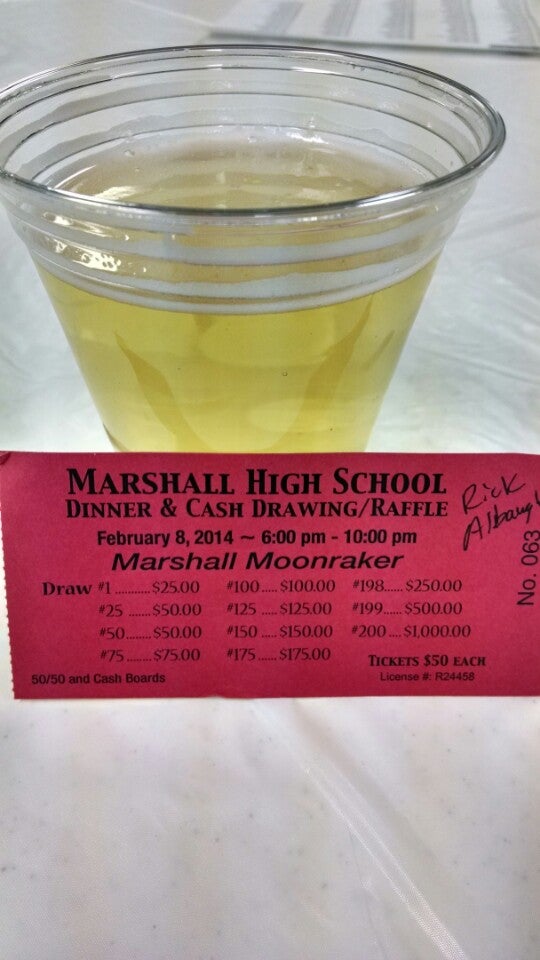 MARSHALL HIGH SCHOOL
DINNER & CASH DRAWING/RAFFLE
February 8, 2014 ~ 6:00 pm - 10:00 pm
Marshall Moonraker
Draw #1 ........... $25.00 #100 ..... $100.00 #198...... $250.00
#25 ....... $50.00 #125 ..... $125.00 #199...... $500.00
#50 ....... $50.00 #150 ..... $150.00 #200 .... $1,000.00
#75 ....... $75.00 #175 ..... $175.00
TICKETS $50 EACH
50/50 and Cash Boards License #: R24458
Rick
No. 063